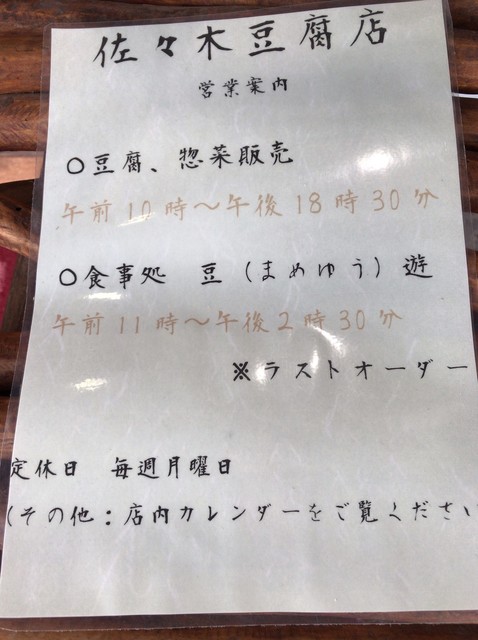 佐々木豆腐店
営業案内
〇豆腐、惣菜販売
午前10時～午後18時30分
〇食事処 豆(まめゆう)遊
午前11時～午後2時30分
※ラストオーダー
定休日 毎週月曜日
(その他：店内カレンダーをご覧ください